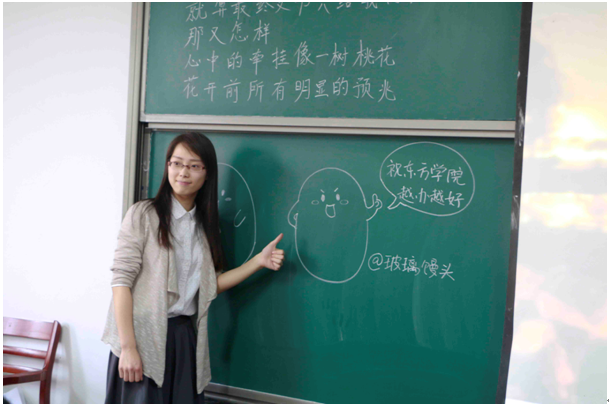 那又怎样
心中的牵挂像一树桃花
花开前所有明显的预兆
祝东方学院
越办越好
@玻璃馒头